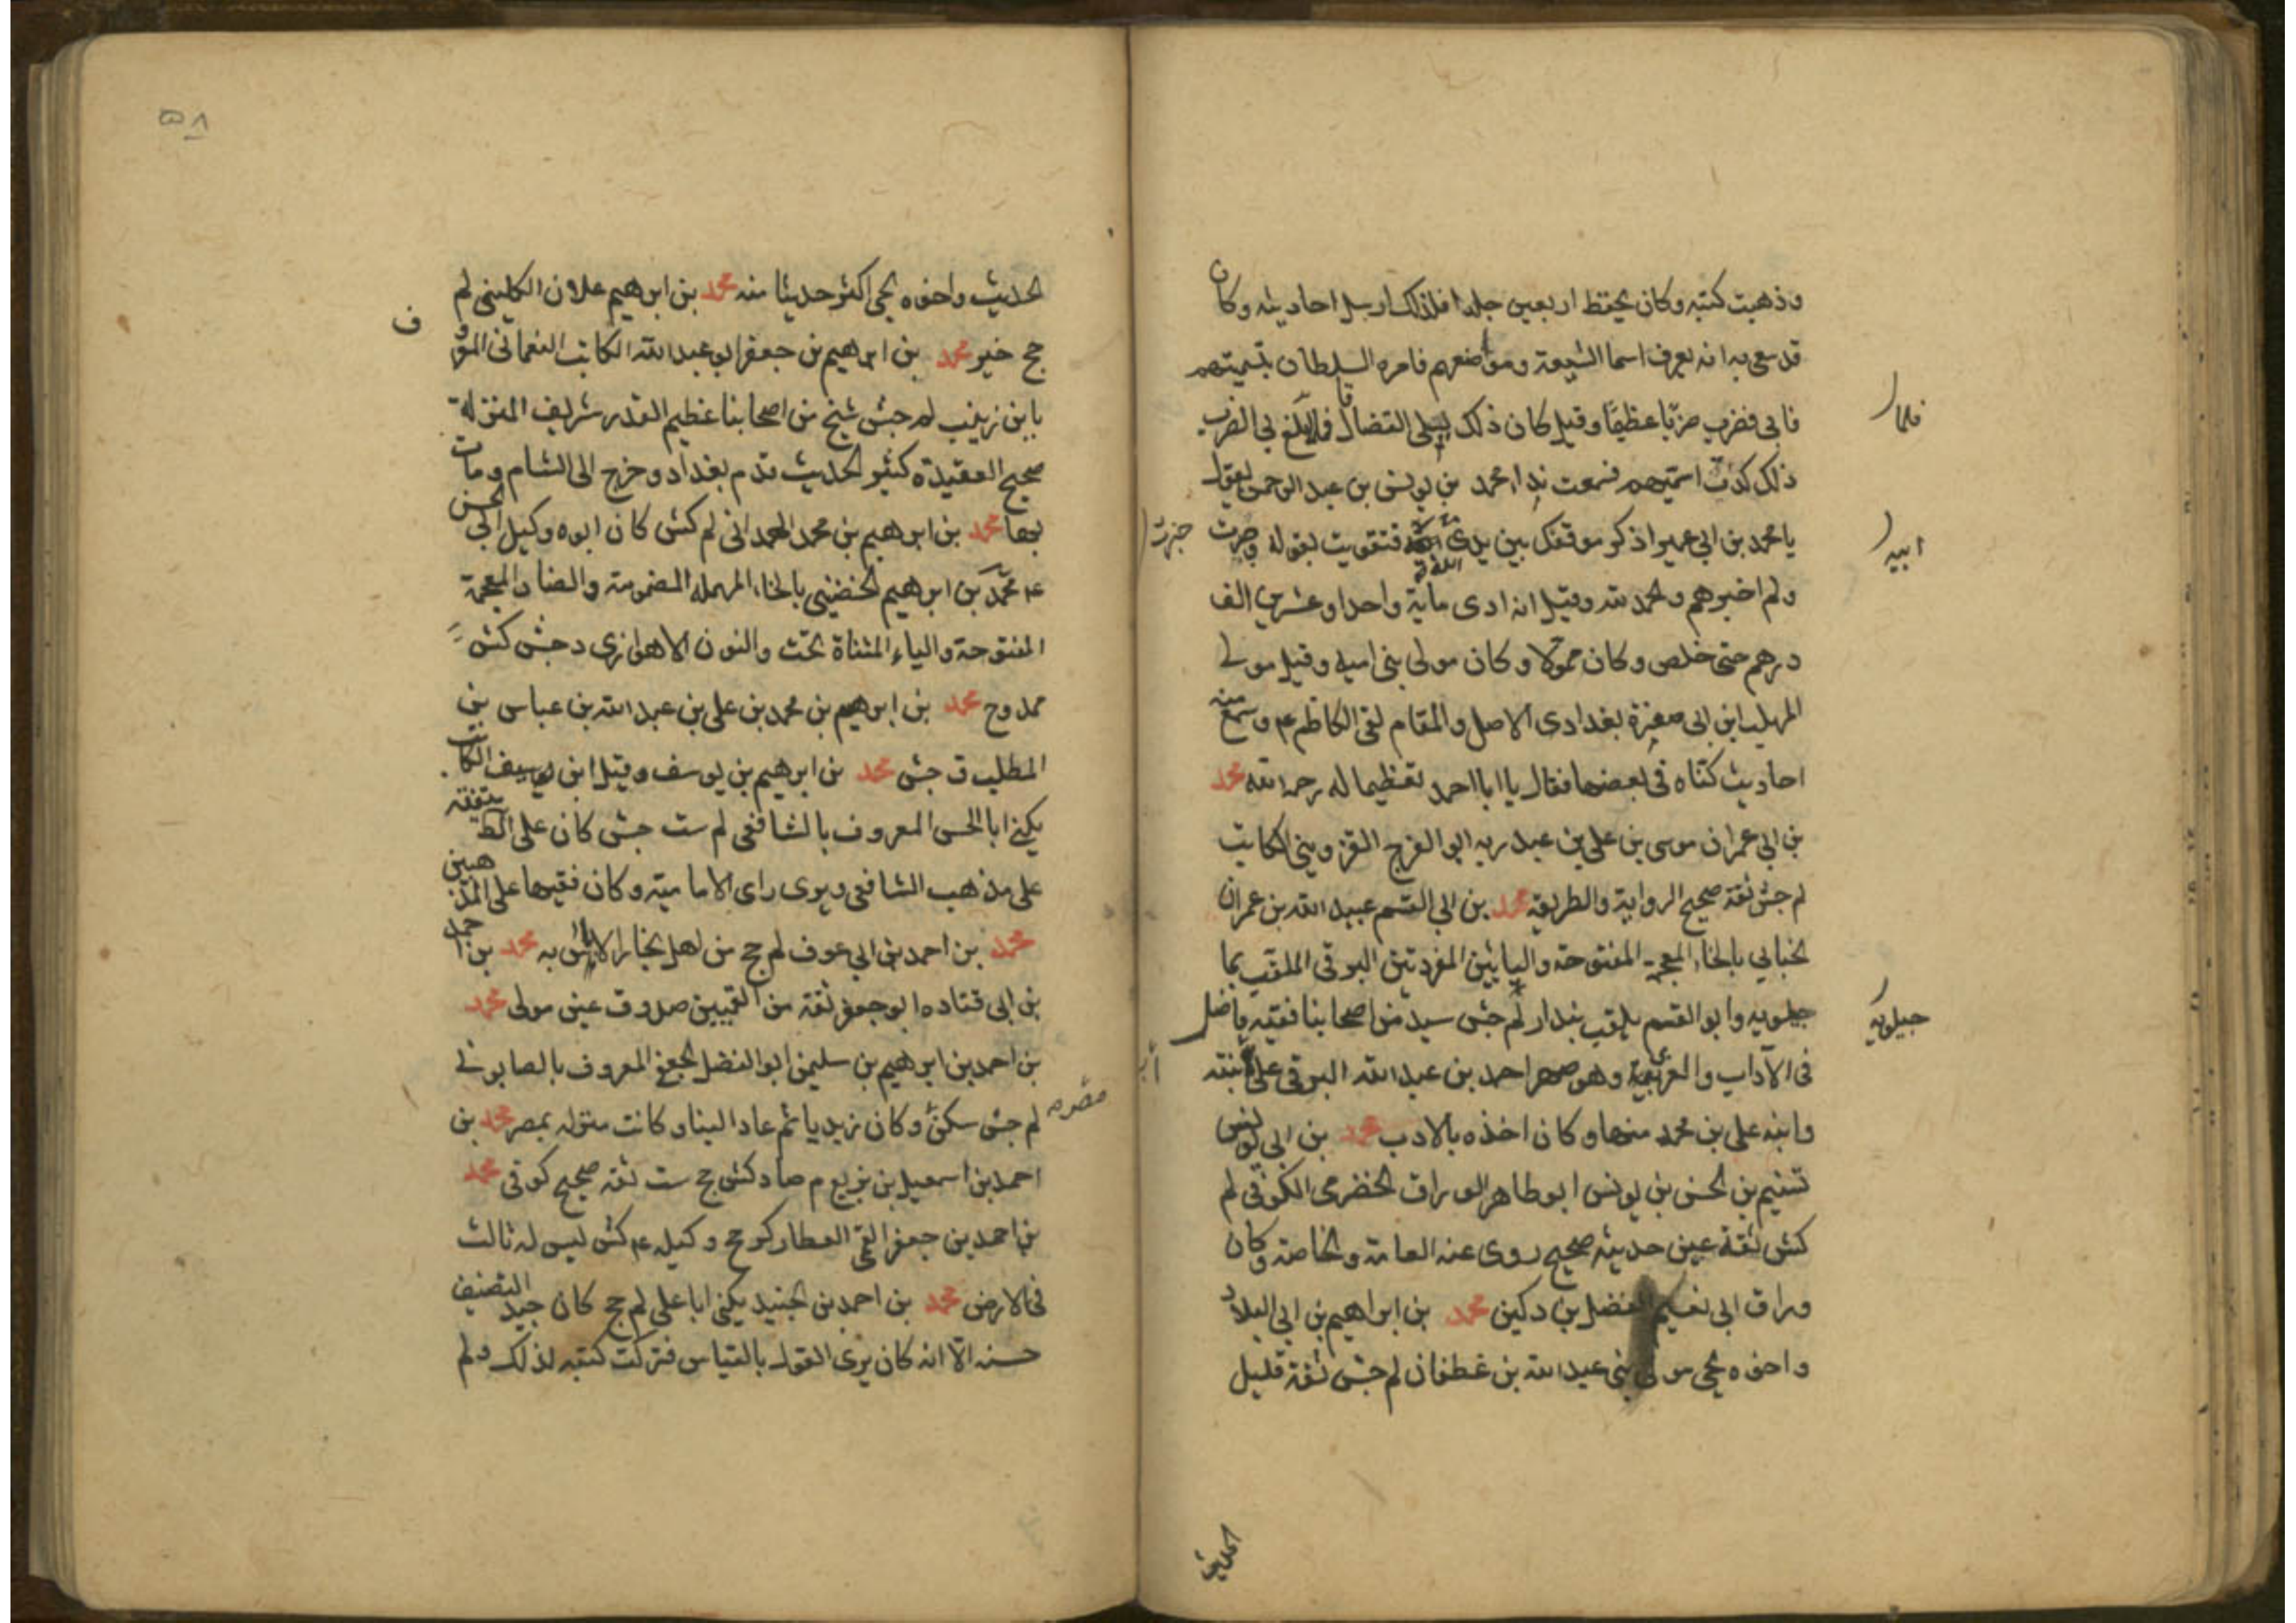 وذهبت كتبه وكان يحفظ اربعين جلدا فلذلك ارسل احاديثه وكان
قد سعى به انه يعرف اسما الشيعة ومواضعهم فامره السلطان بتسميتهم
فابى فضرب ضربا عظيما وقيل كان ذلك ليلى القضا قال فلما بلغ بي الضرب
فلما
ذلك كدت اسميهم فسمعت نداء محمد بن يونس بن عبد الرحمن يقول
يا محمد بن ابي عمير اذكر موقفك بين يدى الله تع فتقويت بقوله وصبرت
ولم اخبرهم والحمد لله وقيل انه ادى ماية واحدا وعشرين الف
درهم حتى خلص وكان ممولا وكان مولى بني امية وقيل مولى
المهلب ابن ابي صفرة بغدادى الاصل والمقام لقى الكاظم ع وسمع منه
احاديث كناه في بعضها فقال يا ابا احمد تعظيما له رحمه الله محمد
بن ابي عمران موسى بن علي بن عبد ربه ابو الفرج القزويني الكاتب
لم جش ثقة صحيح الرواية والطريقة محمد بن ابي القسم عبيد الله بن عمران
الخبابي بالخاء المعجمة المفتوحة والبائين المفردتين البرقي الملقب بما
جيلويه وابو القسم يلقب بندار لم جش سيد من اصحابنا فقيه فاضل
جيلويه
في الآداب والغريب وهو صهر احمد بن عبد الله البرقي على ابنته
وابنه علي بن محمد منها وكان اخذه بالادب محمد بن ابي يونس
تسنيم بن الحسن بن يونس ابو طاهر الوراق الحضرمي الكوفي لم
كش ثقة عين حديثه صحيح روى عنه العامة والخاصة وكان
وراق ابي نعيم الفضل بن دكين محمد بن ابراهيم بن ابي البلاد
واخوه يحيى مولى بني عبد الله بن غطفان لم جش ثقة قليل
الحديث
٥٨
الحديث واخوه يحيى اكثر حديثا منه محمد بن ابرهيم علان الكليني لم
جج خير محمد بن ابرهيم بن جعفر ابو عبد الله الكاتب النعماني المعروف
بابن زينب لم جش شيخ من اصحابنا عظيم القدر شريف المنزلة
صحيح العقيدة كثير الحديث قدم بغداد وخرج الى الشام ومات
بها محمد بن ابرهيم بن محمد الهمداني لم كش كان ابوه وكيل ابي الحسن
ع محمد بن ابرهيم الحضيني بالحاء المهملة المضمومة والضاد المعجمة
المفتوحة والياء المثناة تحت والنون الاهوازي د جش كش
ممدوح محمد بن ابرهيم بن محمد بن علي بن عبد الله بن عباس بن
المطلب ق جش محمد بن ابرهيم بن يوسف وقيل ابن يوسف الكاتب
يكنى ابا الحسن المعروف بالشافعي لم ست جش كان على الظ يتفقه
على مذهب الشافعي ويرى راى الامامية وكان فقيها على المذهبين
محمد بن احمد بن ابي عوف لم جج من اهل بخارا لا باس به محمد بن احمد
بن ابي قتاده ابو جعفر ثقة من القميين صدوق عين مولى محمد
بن احمد بن ابرهيم بن سليمن ابو الفضل الجعفي المعروف بالصابوني
لم جش سكن وكان زيديا ثم عاد الينا وكانت منزله بمصر محمد بن
احمد بن اسمعيل بن بزيع م ضا د كش جج ست ثقة صحيح كوفي محمد
بن احمد بن جعفر القمي العطار كر جج وكيله ع كش ليس له ثالث
في الارض محمد بن احمد بن الجنيد يكنى ابا علي لم جج كان جيد التصنيف
حسنه الا انه كان يرى القول بالقياس فتركت كتبه لذلك ولم